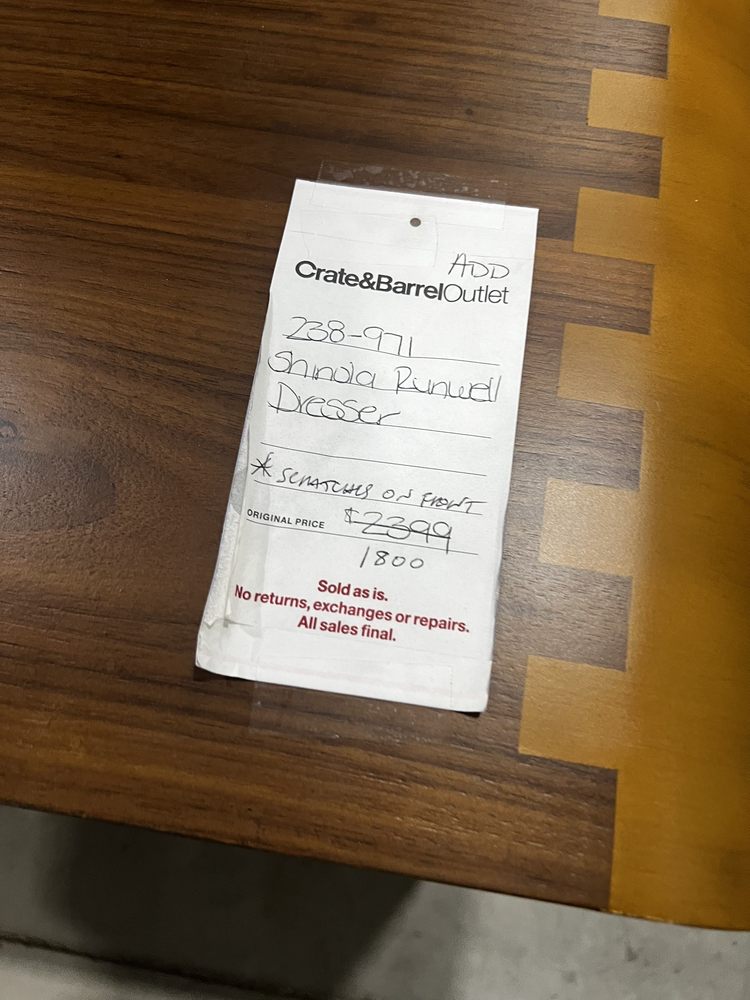 ADD
Crate&BarrelOutlet
238-971
Shinola Runwell
Dresser
* SCRATCHES ON FRONT
ORIGINAL PRICE $2399
1800
Sold as is.
No returns, exchanges or repairs.
All sales final.